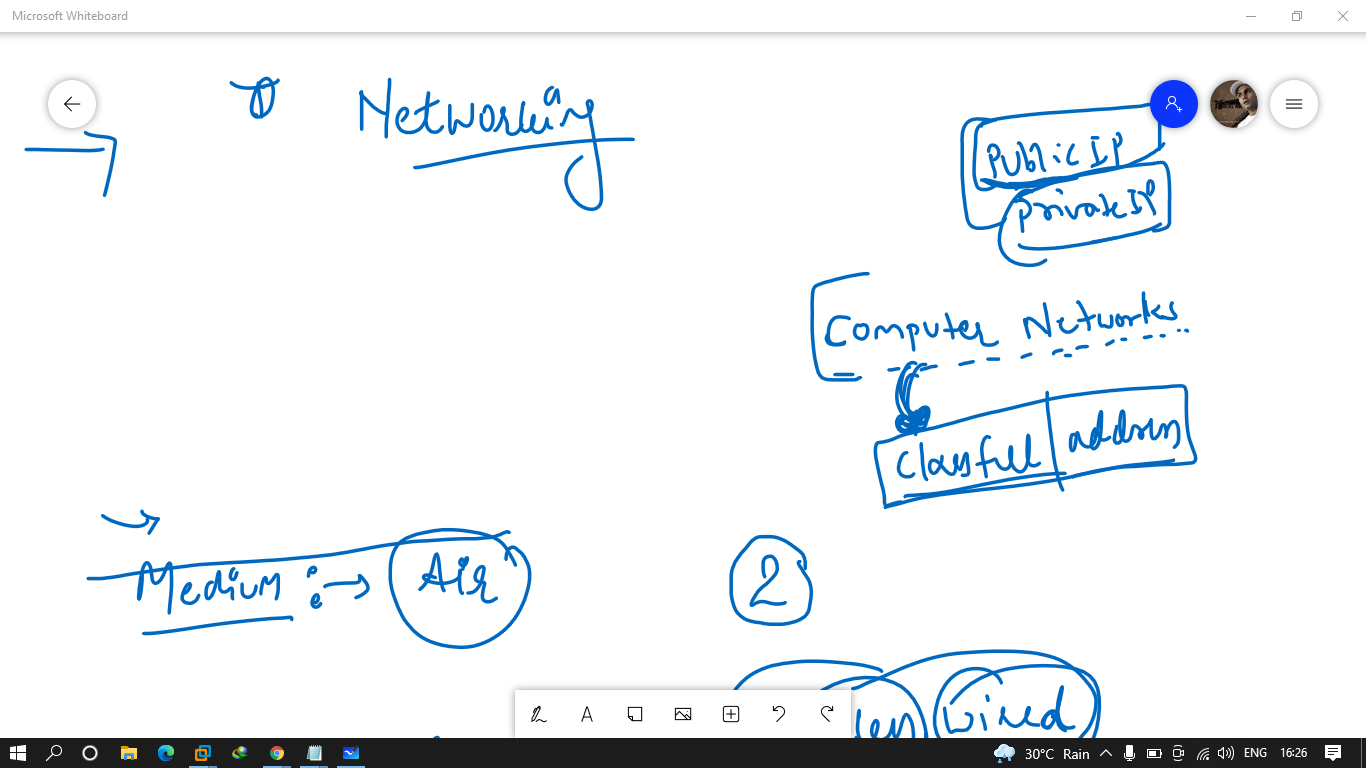 Microsoft Whiteboard
Networking
Public IP
private IP
Computer Networks
Classfull address
Medium : → Air
2
wired
A
30°C Rain
ENG
16:26